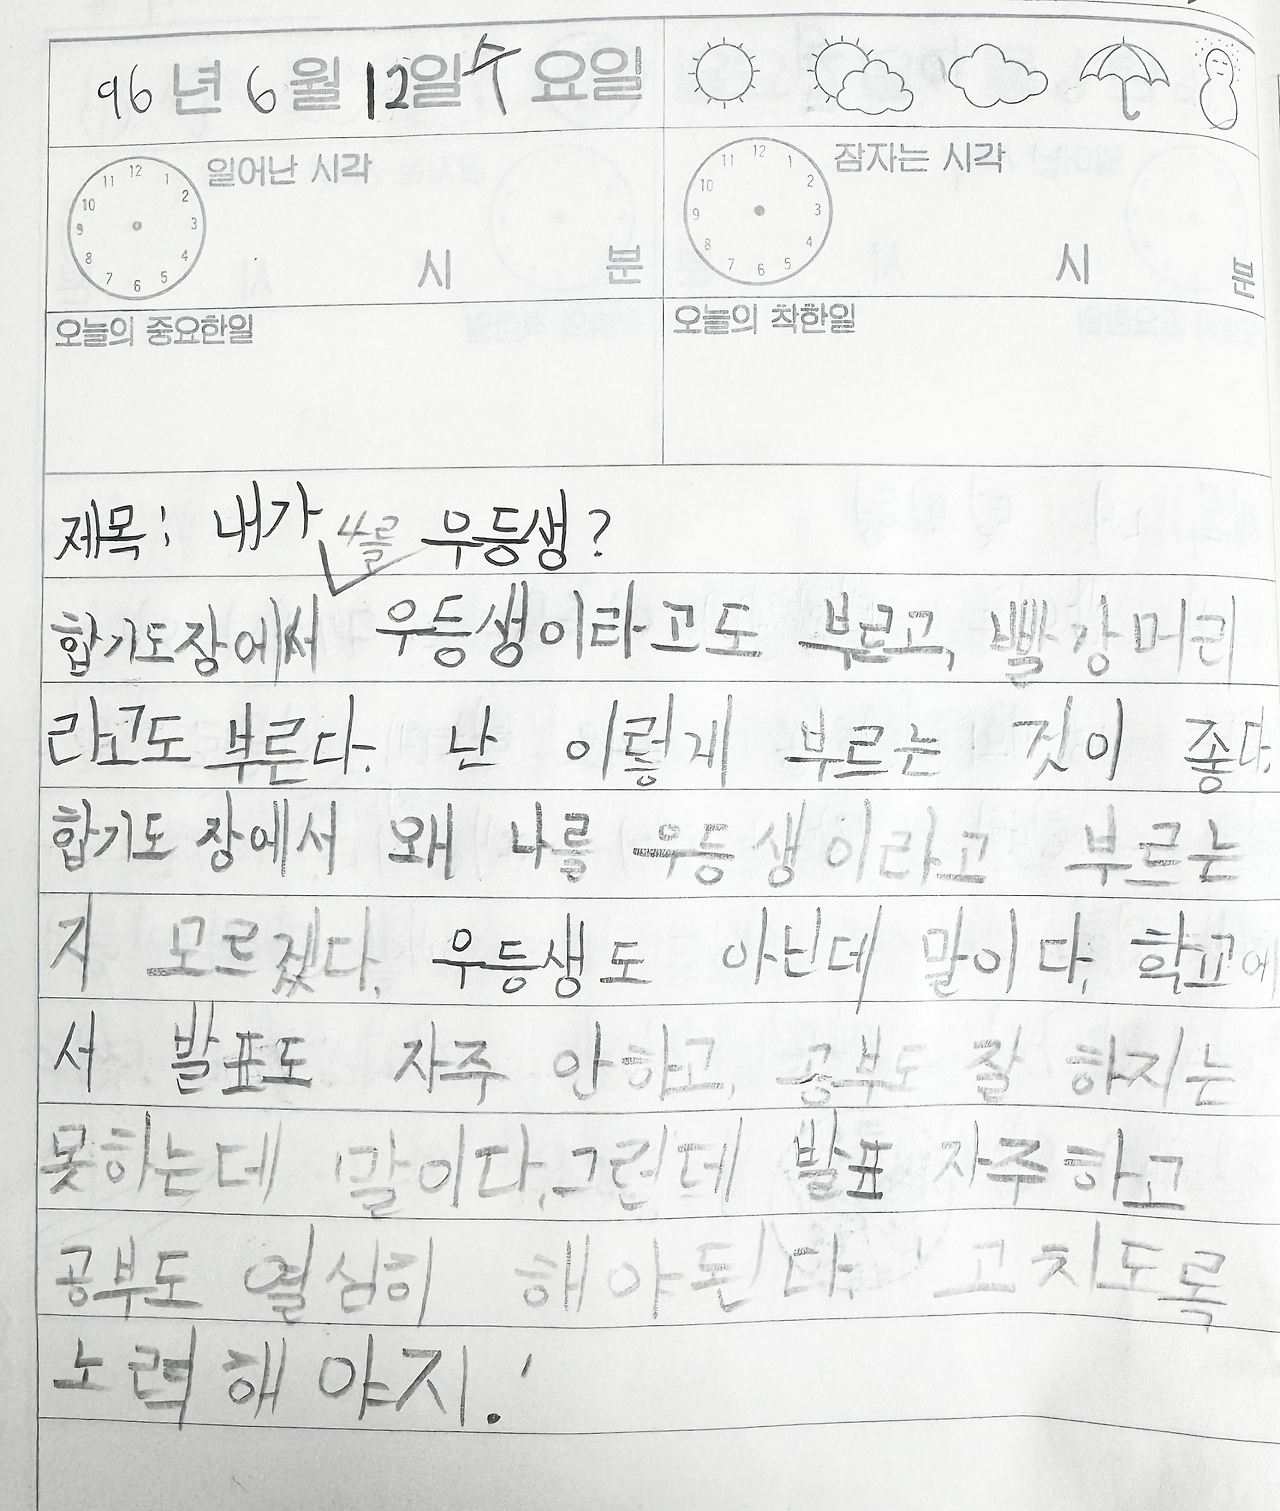 96년 6월 12일 수요일
12 1 2 3 4 5 6 7 8 9 10 11
일어난 시각
시 분
12 1 2 3 4 5 6 7 8 9 10 11
잠자는 시각
시 분
오늘의 중요한일
오늘의 착한일
제목: 내가 우등생?
합기도장에서 우등생이라고도 부르고, 빨강머리
라고도 부른다. 난 이렇게 부르는 것이 좋다.
합기도 장에서 왜 나를 우등생이라고 부르는
지 모르겠다. 우등생도 아닌데 말이다. 학교에
서 발표도 자주 안하고, 공부도 잘 하지는
못하는데 말이다. 그런데 발표 자주하고
공부도 열심히 해야된다. 고치도록
노력해야지.